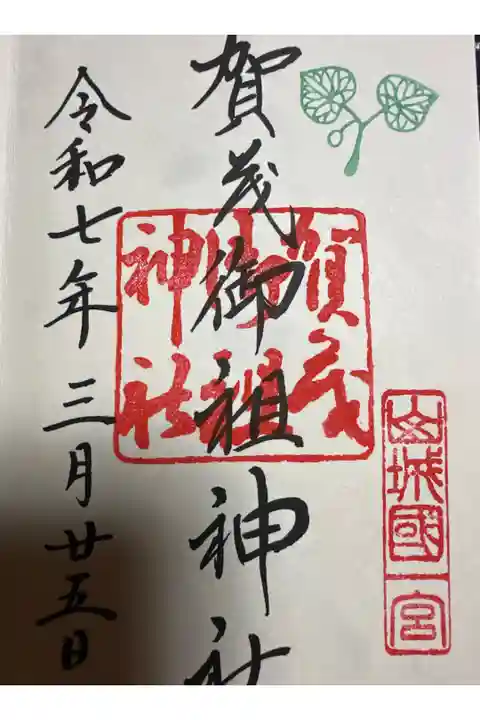 山城國一宮
賀茂御祖神社
賀茂
御祖
神社
令和七年三月廿五日